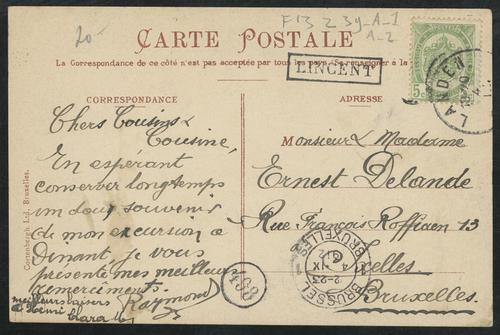 20-
F13 2 39-A-1
A-2
CARTE POSTALE
La Correspondance de ce côté n'est pas acceptée par tous les pays. Se renseigner à la
LINCENT
5c
LANDEN
CORRESPONDANCE
Chers Cousins &
Cousine,
En espérant
conserver longtemps
un doux souvenir
de mon excursion à
Dinant, je vous
présente mes meilleurs
remerciments.
Raymond
meilleurs baisers
à Henri
Clara
Corenbergh Ltd. Bruxelles.
ADRESSE
Monsieur & Madame
Ernest Delande
Rue François Roffiaen 13
Ixelles
Bruxelles.
BRUXELLES
BRUSSEL
4 IX
2-23
168